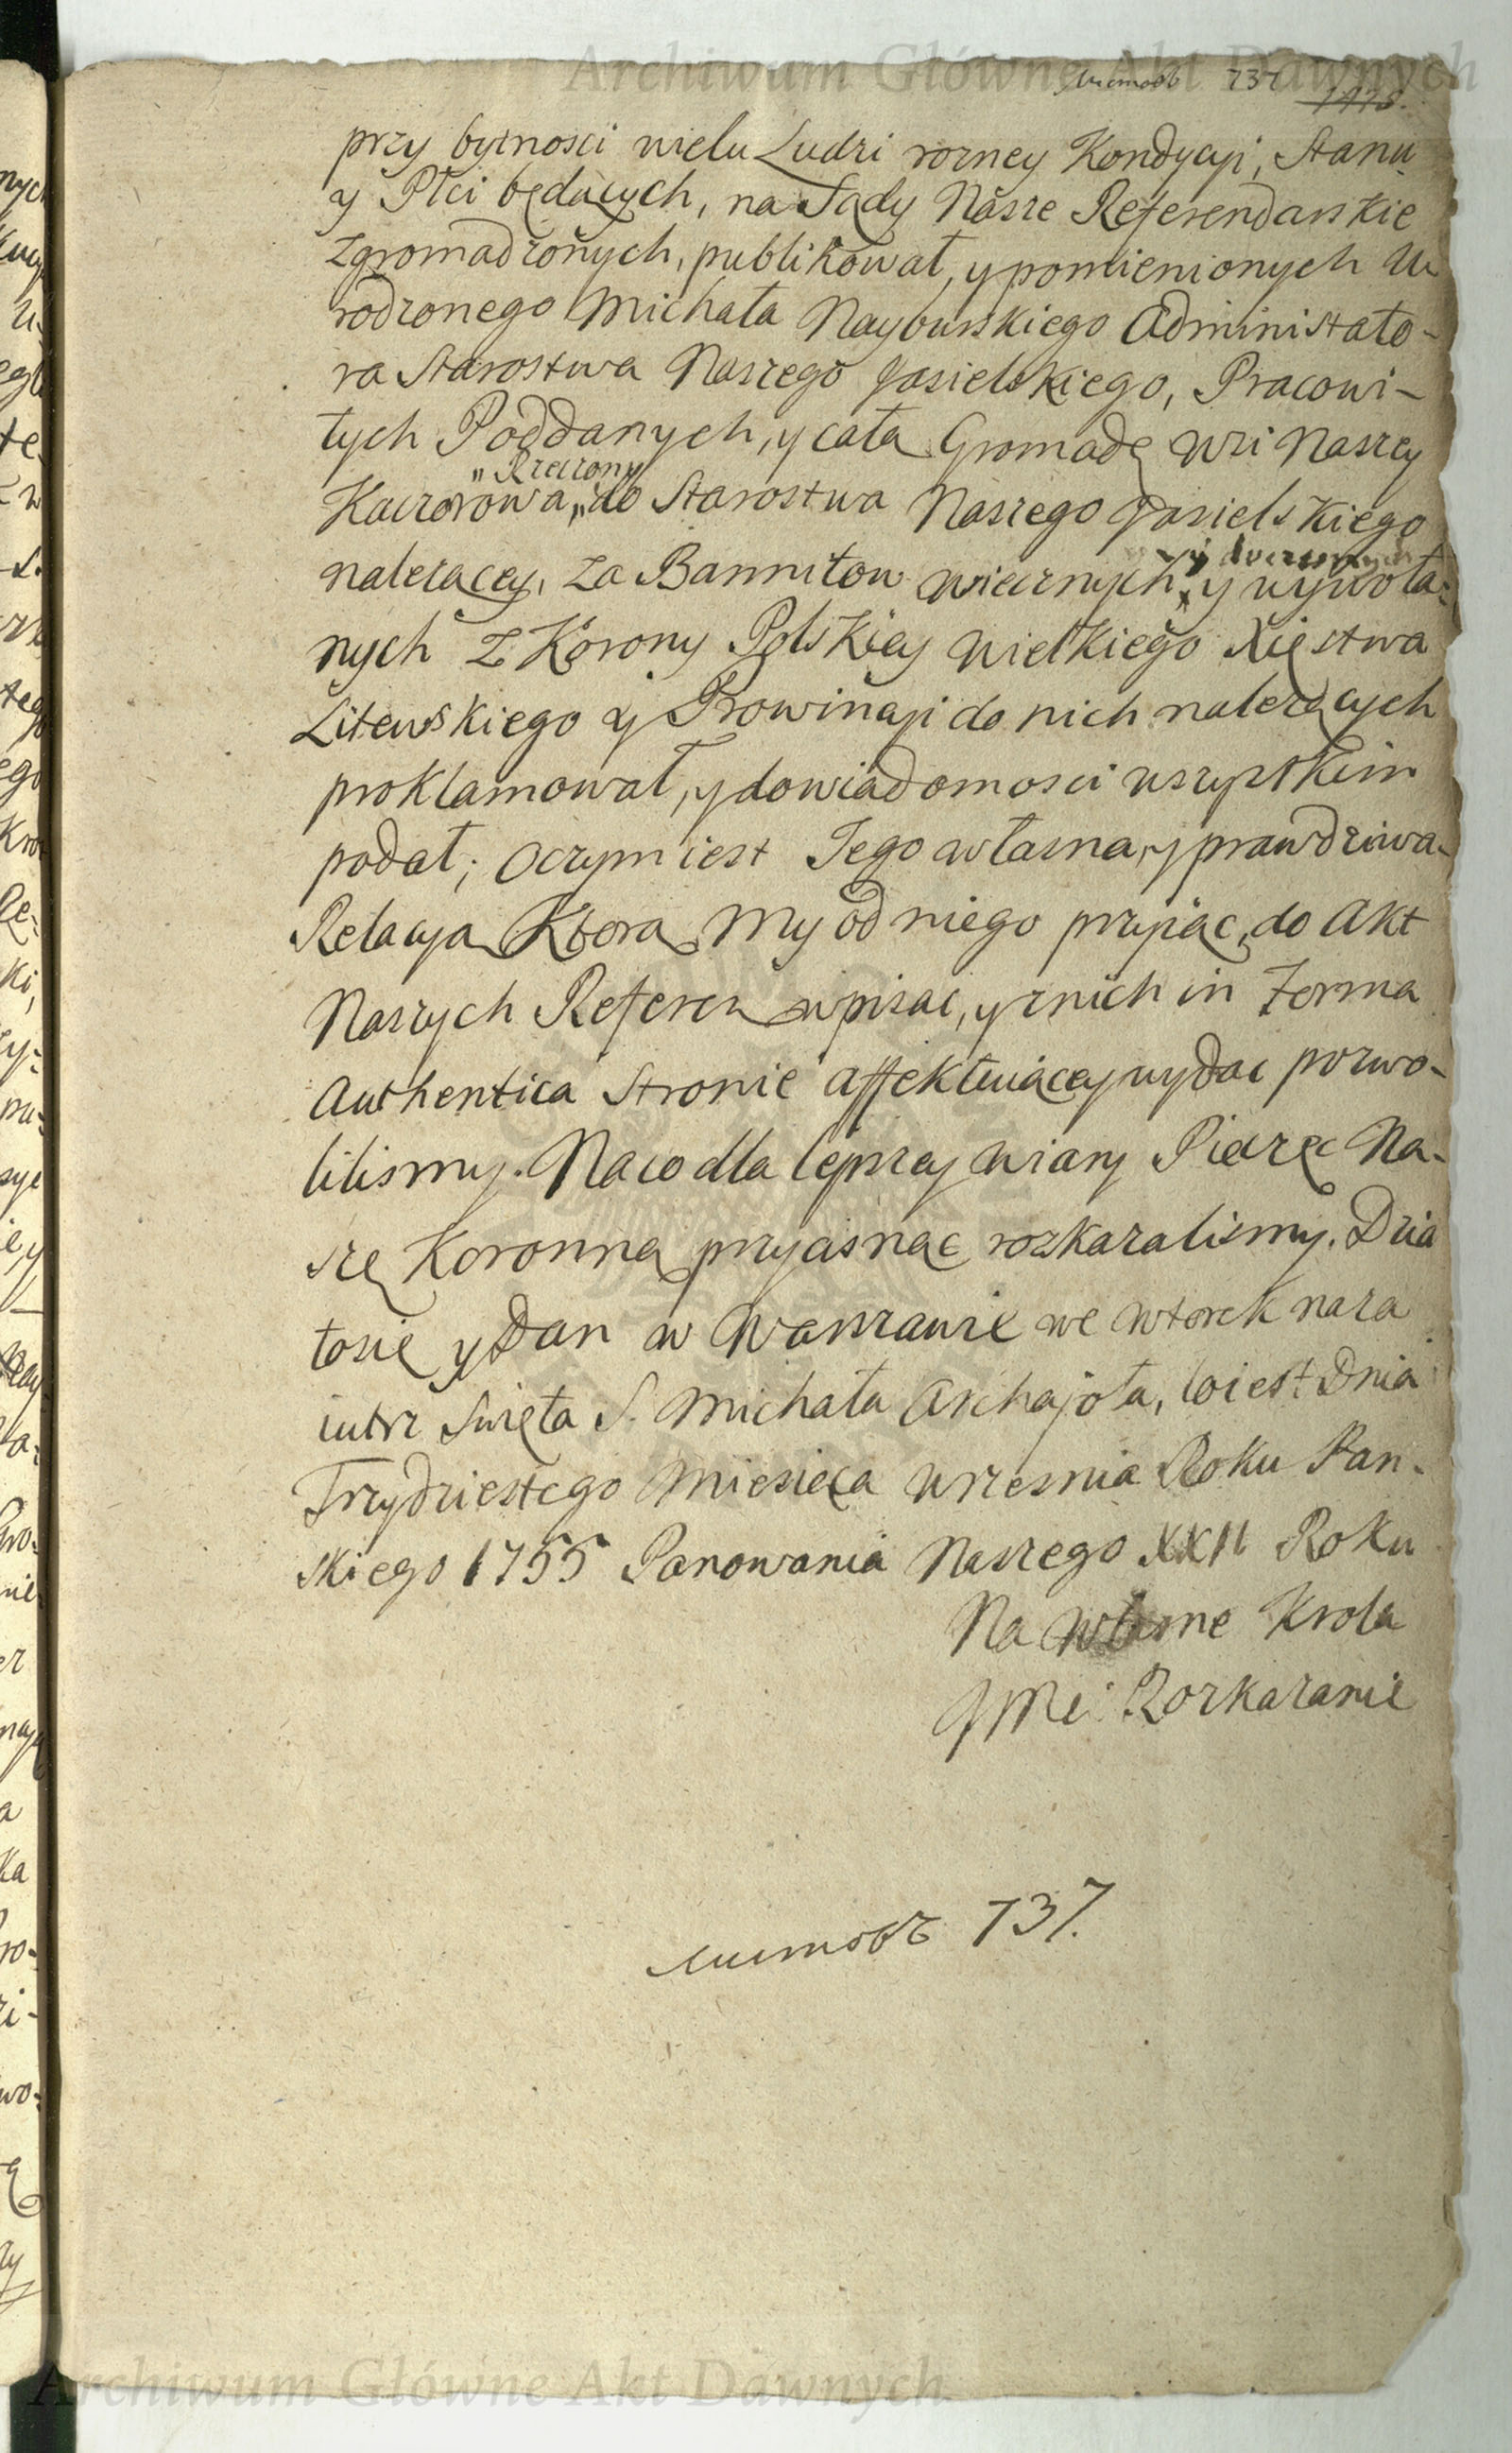 Archiwum Główne Akt Dawnych
листовъ 737
1475.
przy bytnosci wielu Ludzi rozney Kondycyi, Stanu
y Płci będących, na Sądy Nasze Referendarskie
zgromadzonych, publikował, y pomienionych U-
rodzonego Michała Nayburskiego Administato-
ra Starostwa Naszego Jasielskiego, Pracowi-
tych Poddanych, y całą Gromadę wsi Naszey
„Rzeczony
Kaczorowa „do Starostwa Naszego Jasielskiego
należącey, za Bannitow wiecznych, y wywoła-
y doczesnych
nych z Korony Polskiey Wielkiego Xięstwa
Litewskiego y Prowincyi do nich należących
proklamował, y do wiadomosci wszystkim
podał; o czym iest Jego własna, y prawdziwa
Relacya, Ktorą My od niego przyiąc, do Akt
Naszych Referen wpisac, y z nich in Forma
Authentica Stronie affektuiącey wydac pozwo-
lilismy. Na co dla lepszey wiary Pieczęc Na-
szę Koronną przycisnąc rozkazalismy. Dzia
łosię y Dan w Warszawie we wtorek naza
iutrz Swięta S. Michała Archajoła, to iest Dnia
Trzydziestego Miesiąca Wrzesnia Roku Pan-
skiego 1755 Panowania Naszego XXII Roku
Na własne Krola
JMci Rozkazanie
листовъ 737.
Archiwum Główne Akt Dawnych